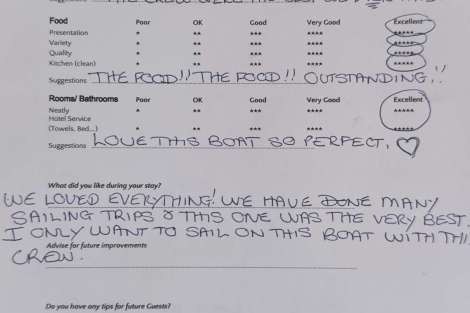 THE CREW WERE THE BEST
Food Poor OK Good Very Good Excellent
Presentation * ** *** **** *****
Variety * ** *** **** *****
Quality * ** *** **** *****
Kitchen (clean) * ** *** **** *****
Suggestions THE FOOD!! THE FOOD!! OUTSTANDING!!
Rooms/ Bathrooms Poor OK Good Very Good Excellent
Neatly * ** *** **** *****
Hotel Service
(Towels, Bed...) * ** *** **** *****
Suggestions LOVE THIS BOAT SO PERFECT. ♡
What did you like during your stay?
WE LOVED EVERYTHING! WE HAVE DONE MANY
SAILING TRIPS & THIS ONE WAS THE VERY BEST.
I ONLY WANT TO SAIL ON THIS BOAT WITH THI
Advise for future improvements
CREW.
Do you have any tips for future Guests?